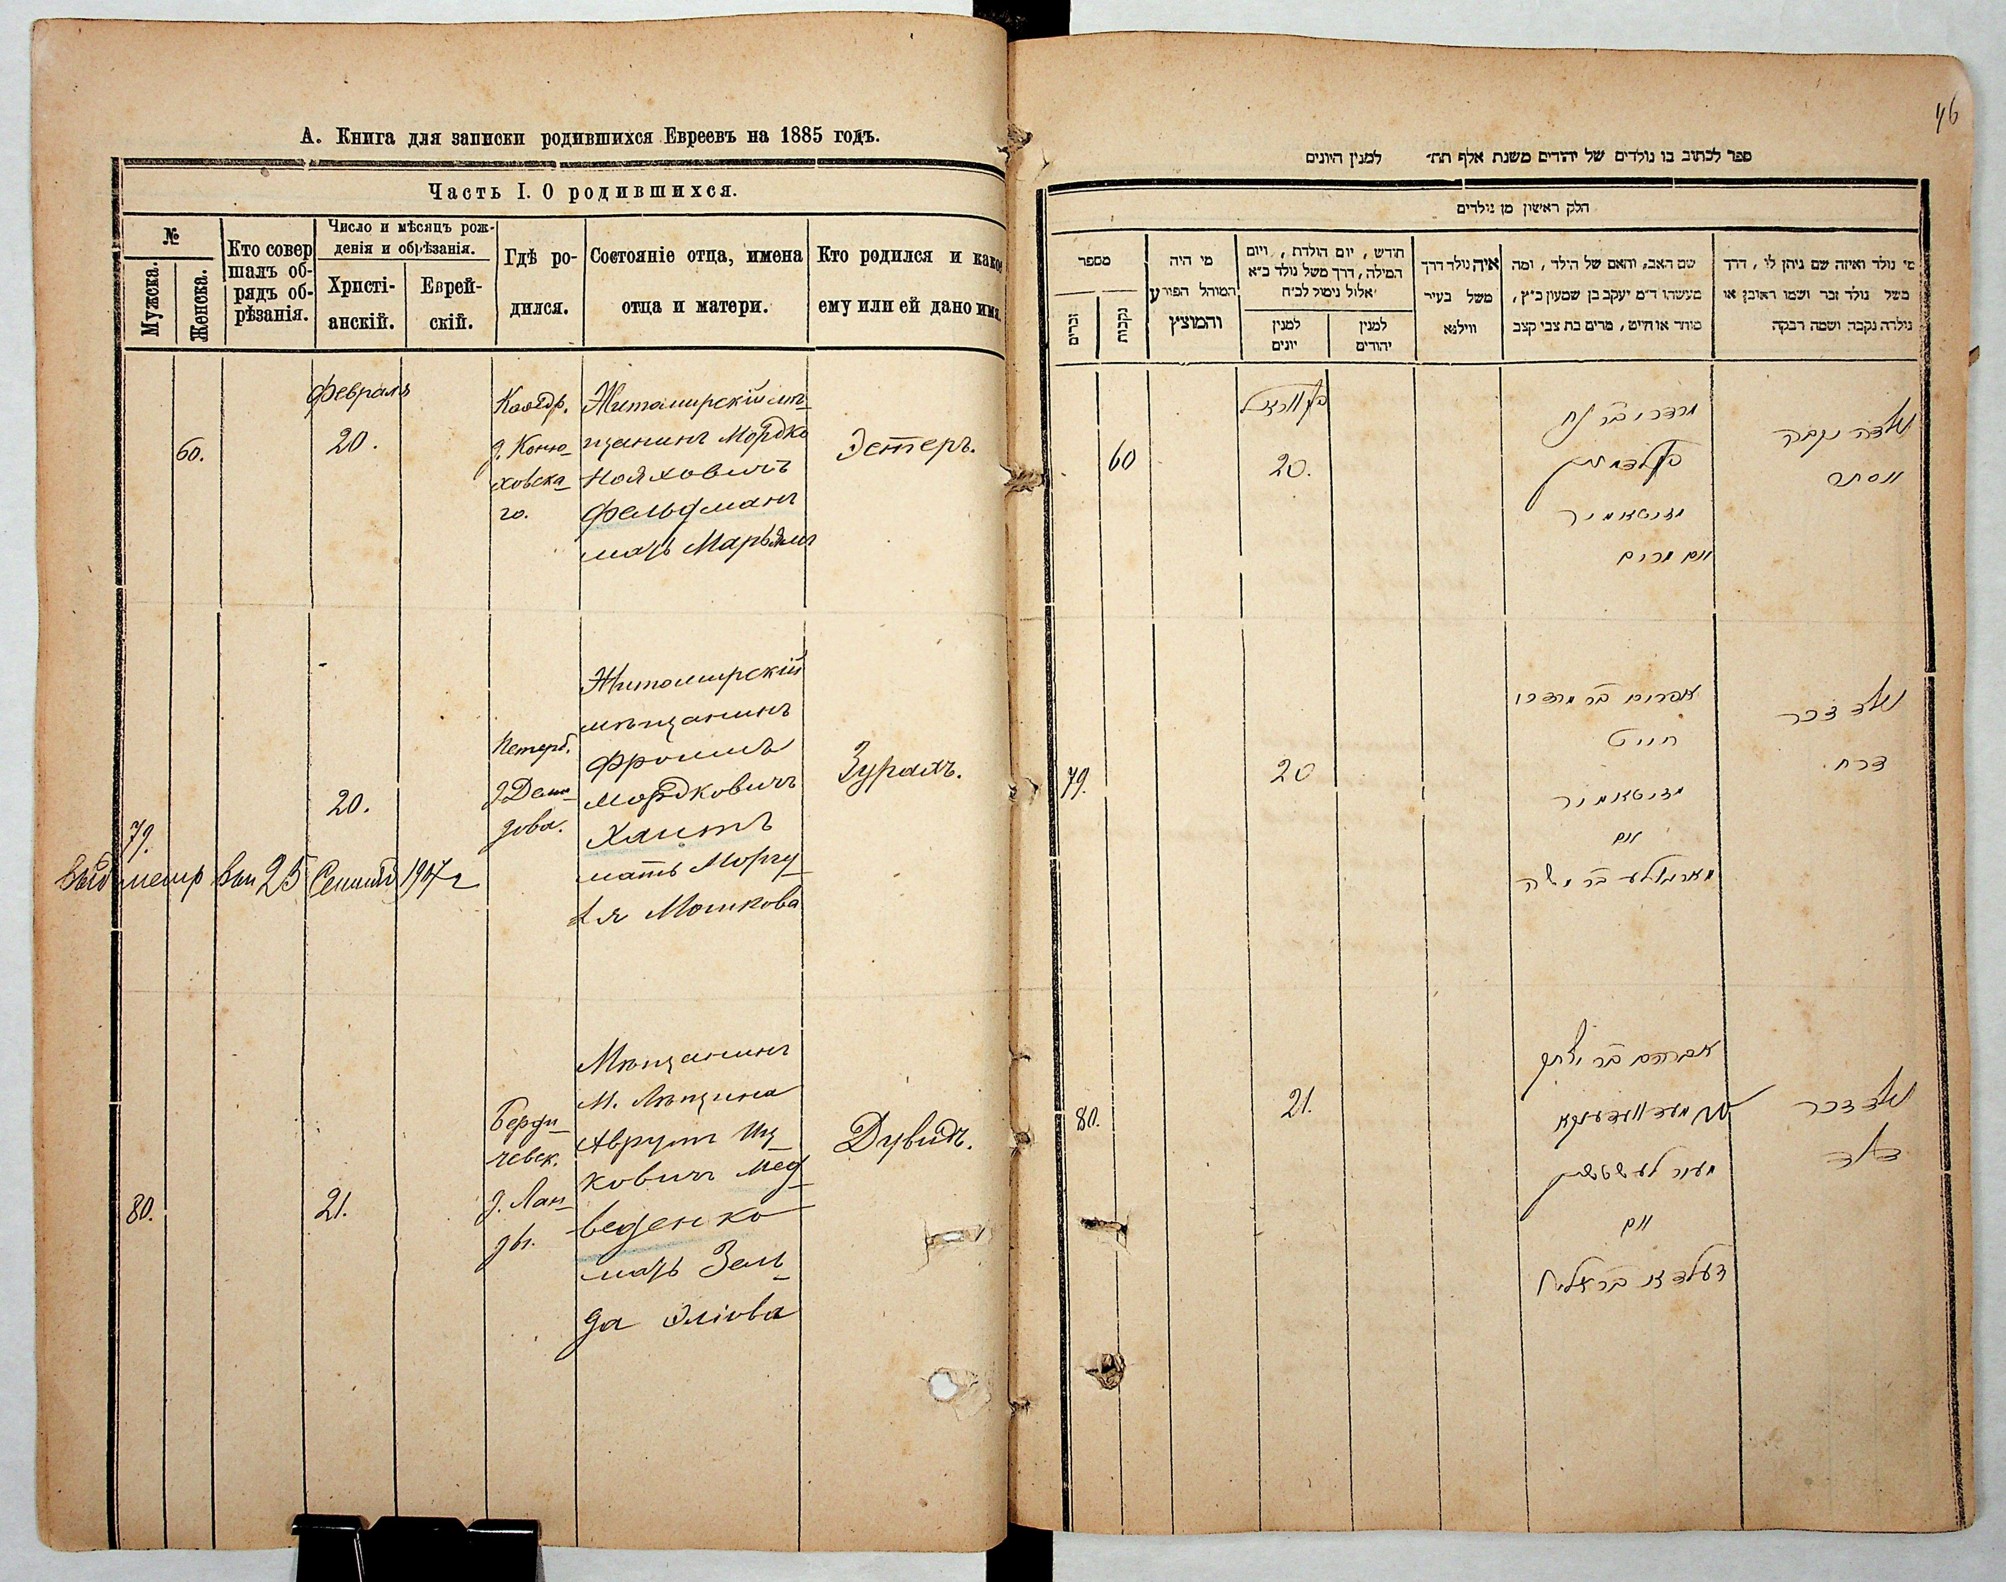 А. Книга для записки родившихся Евреевъ на 1885 годъ.
Часть I. О родившихся.
№
Мужска.
Женска.
Кто совер
шалъ об-
рядъ об-
рѣзанія.
Число и мѣсяцъ рож-
денія и обрѣзанія.
Христі-
анскій.
Еврей-
скій.
Гдѣ ро-
дился.
Состояніе отца, имена
отца и матери.
Кто родился и какое
ему или ей дано имя.
Февраль
60.
20.
д. Коню-
ховска-
го.
Житомирскій мѣ-
щанинъ Мордко
Нойховичъ
Фельдманъ
мать Марьямъ
Эстеръ.
79.
20.
Петерб.
д. Деми-
дова.
Житомирскій
мѣщанинъ
Фроимъ
Мордковичъ
Хаитъ
мать Моргу
Мошкова
Зурахъ.
25
1907 г
80.
21.
Берди-
чевск.
д. Лан-
ды.
Мѣщанинъ
м. Лѣщина
Аврумъ Иц-
ковичъ Мед-
веденко
мать Зель-
да Эліова
Дувидъ.
46
ספר לכתוב בו נולדים של יהודים משנת אלף תת׳ למנין היונים
חלק ראשון מן נולדים
מספר
זכרים
נקבות
מי היה
המוהל הפורע
והמוצץ
חודש, יום הולדת, ויום
המילה, דרך משל נולד כ״א
אלול נימול לכ״ח
למנין
יונים
למנין
יהודים
איה נולד דרך
משל בעיר
ווילנא
שם האב, והאם של הילד, ומה
מעשהו ד״מ יעקב בן שמעון כ״ץ,
סוחר או חייט, מרים בת צבי קצב
מי נולד ואיזה שם ניתן לו, דרך
משל נולד זכר ושמו ראובן או
נולדה נקבה ושמה רבקה
60
20.
מרדכי בר נח
פעלדמאן
מזיטאמיר
ואם מרים
נולדה נקבה
אסתר
79.
20
אפרים בר מרדכי
חייט
מזיטאמיר
ואם
נולד זכר
זרח
80.
21.
אברהם בר יצחק
ואם
נולד זכר
דוד